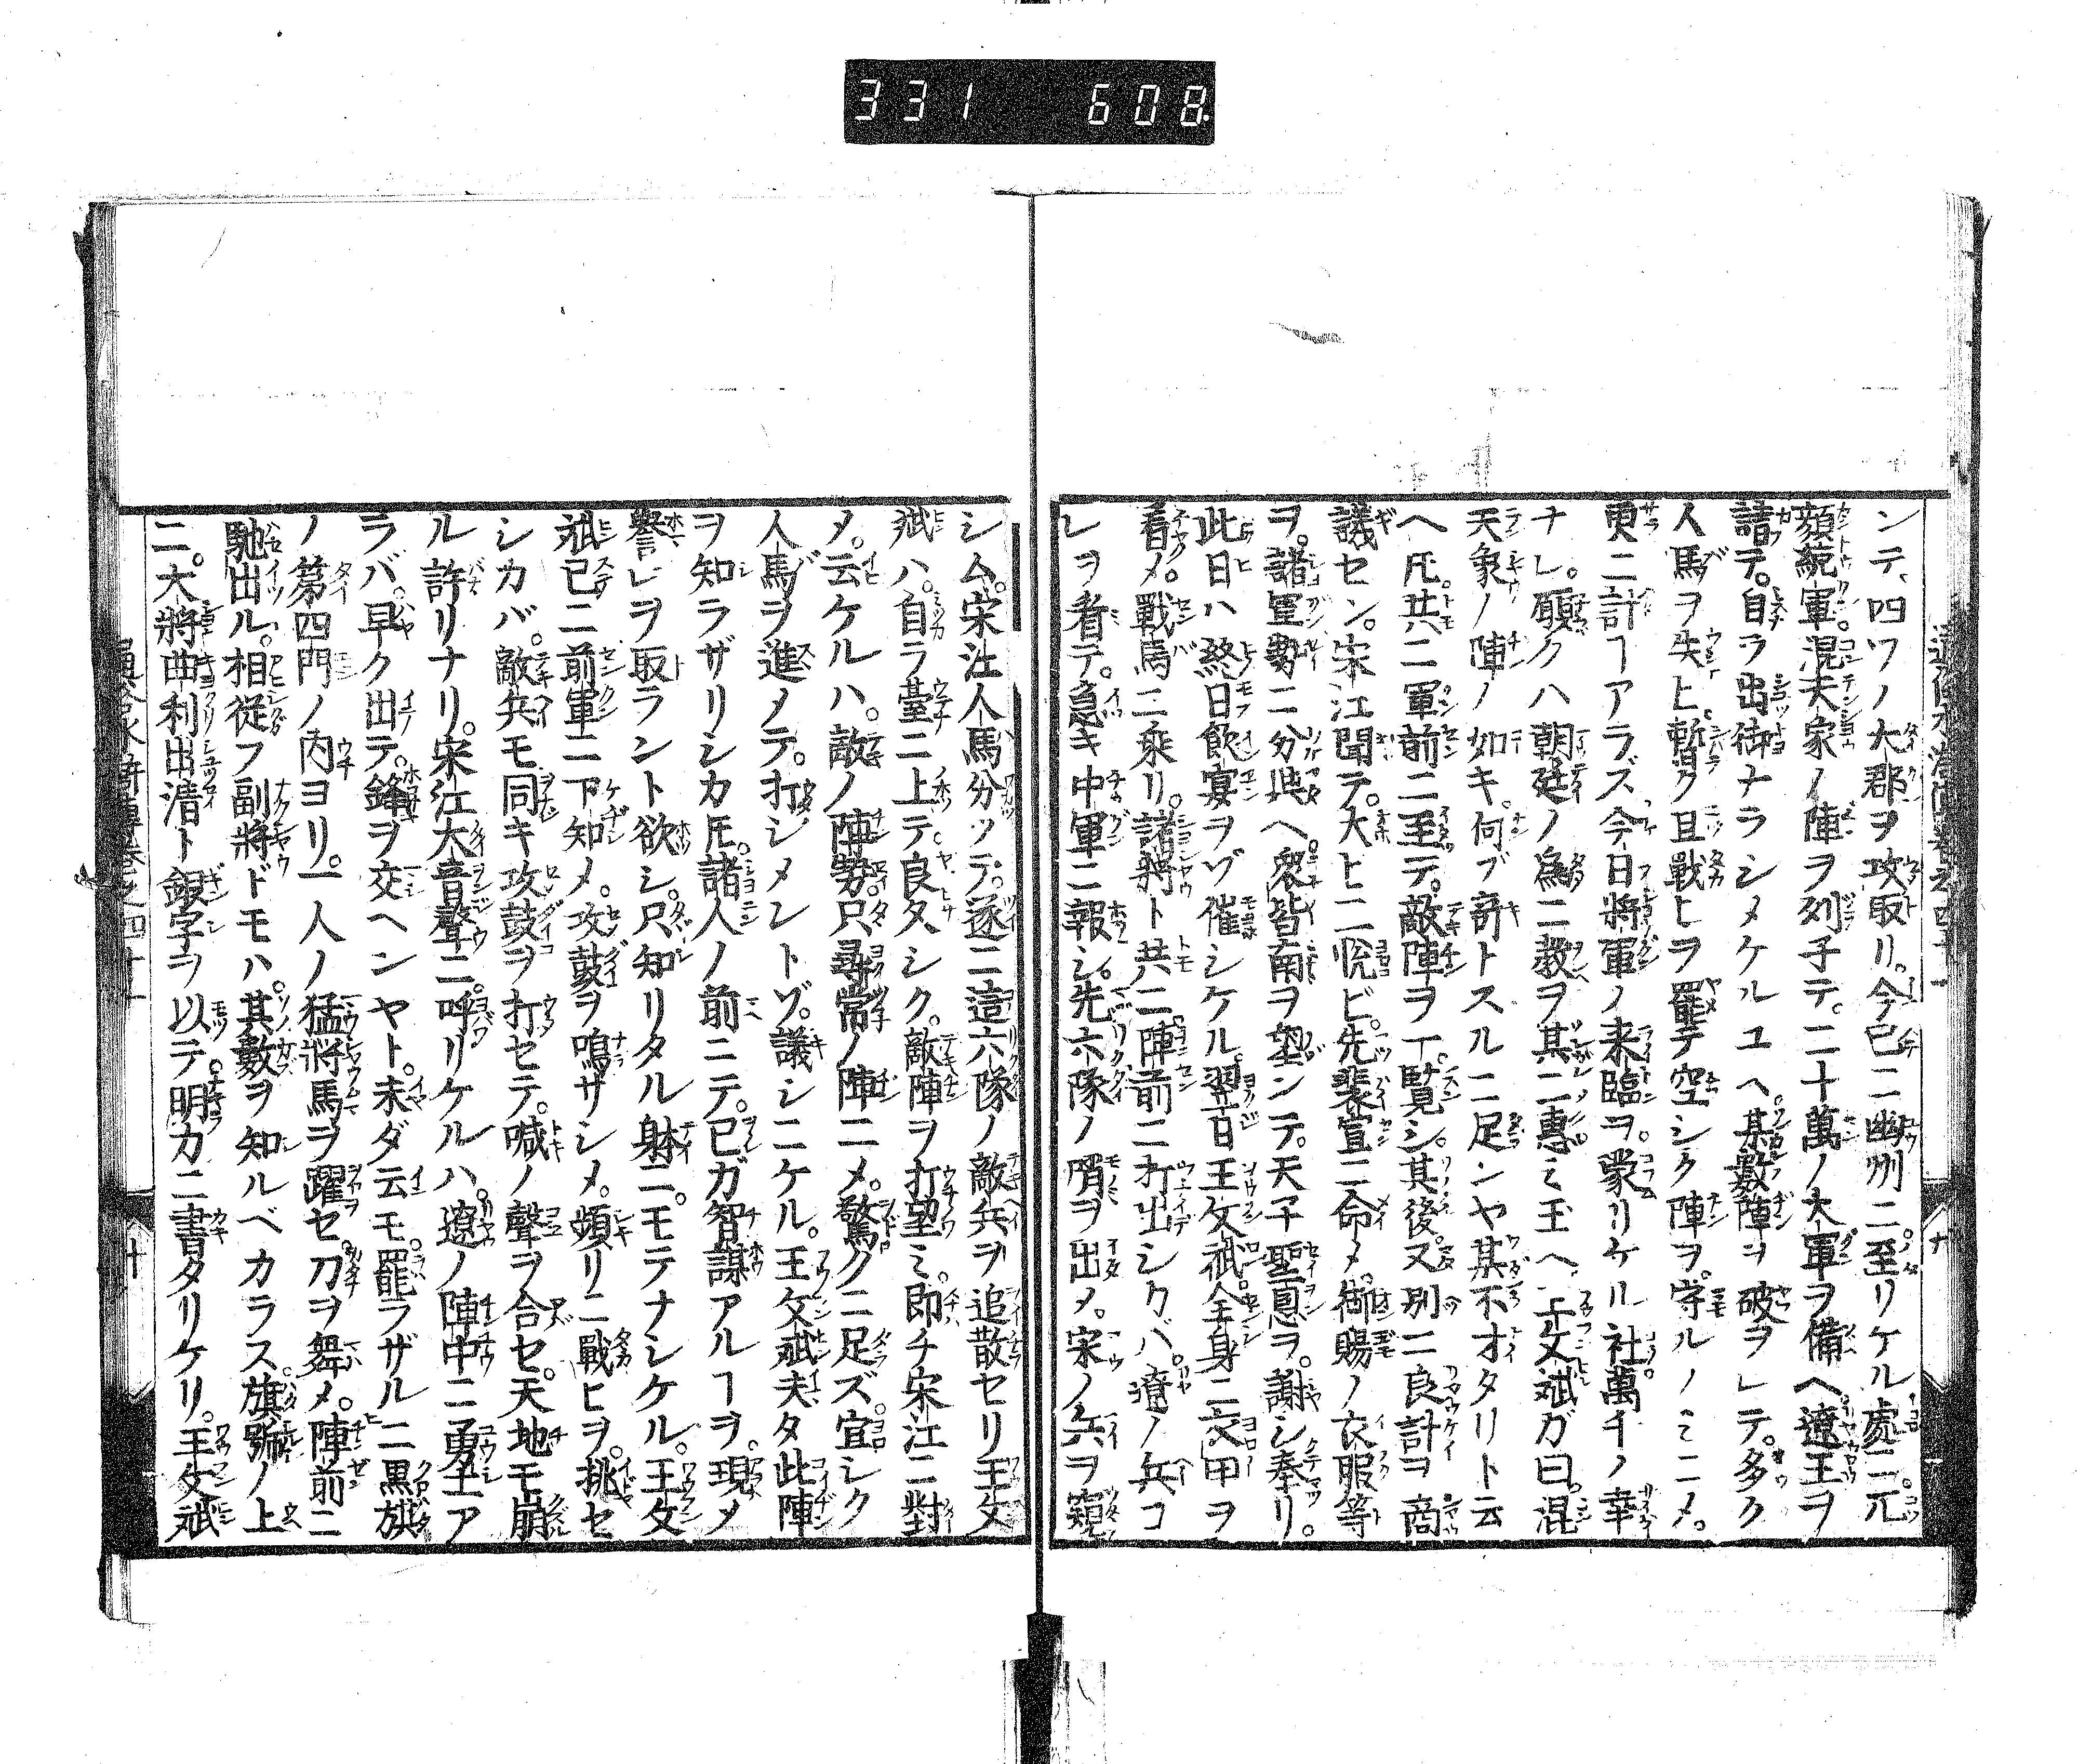 331 608
ンテ、四ツノ大郡ヲ攻取リ。今已ニ幽州ニ。至リケル處ニ。兀
顔統軍。混天象ノ陣ヲ列子テ。二十萬ノ大軍ヲ備ヘ遼王ヲ
請テ。自ラ出御ナラシメケルユヘ。某數陣ヲ破ラレテ。多ク
人馬ヲ失ヒ。暫ク且戰ヒヲ罷テ空シク陣ヲ。守ルノミニメ。
更ニ計ヿアラズ今日將軍ノ来臨ヲ。蒙リケルハ。萬千ノ幸
ナレ。願クハ朝廷ノ為ニ教ヲ其ニ惠ミ玉ヘ。王文斌ガ曰。混
天象ノ陣ノ如キ。何ゾ竒トスルニ足ンヤ某不才タリト云
ヘ𪜈。共ニ軍前ニ至テ。敵陣ヲ一覧シ。其後又別ニ良計ヲ商
議セン。宋江聞テ。大ヒニ悦ビ。先裴宣ニ命メ。御賜ノ衣服等
ヲ。諸軍勢ニ分與ヘ。衆皆南ヲ望ンテ。天子聖恩ヲ。謝シ奉リ。
此日ハ終日飲宴ヲゾ催シケル。翌日王文斌。全身ニ衣甲ヲ
着メ。戰馬ニ乗リ。諸將ト共ニ。陣前ニ打出シクバ。遼ノ兵コ
レヲ看テ。急キ中軍ニ報シ。先六隊ノ屑ヲ出メ。宋ノ兵ヲ窺
シム。宋江人馬分ツテ。遂ニ這六隊ノ敵兵ヲ追散セリ王文
斌ハ。自ラ臺ニ上テ。良久シク。敵陣ヲ打望ミ。即チ宋江ニ對
メ。云ケルハ。敵ノ陣勢。只尋常ノ陣ニメ。驚クニ足ズ宜シク
人馬ヲ進メテ。打シメントゾ。議シニケル。王文斌夫タ此陣
ヲ知ラザリシカ𪜈。諸人ノ前ニテ。已ガ智謀アルヿヲ。現メ
譽レヲ取ラント欲シ。只知リタル躰ニ。モテナシケル。王文
斌已ニ前軍ニ下知メ。攻鼓ヲ鳴ザシメ。頻リニ戰ヒヲ。挑セ
シカバ。敵兵モ同キ攻鼓ヲ打セテ。喊ノ聲ヲ合セ。天地モ崩
ル許リナリ。宋江大音聲ニ。呼リケルハ。遼ノ陣中ニ勇士ア
ラバ。早ク出テ。鋒ヲ交ヘンヤト。未ダ云モ。罷ラザルニ黒旗
ノ第四門ノ内ヨリ。一人ノ猛將馬ヲ躍セ。刀ヲ舞メ。陣前ニ
馳出ル。相從フ副將ドモハ。其數ヲ知ルベカラス。旗號ノ上
ニ。大將曲利出清ト銀字ヲ以テ。明カニ書タリケリ。王文斌
十